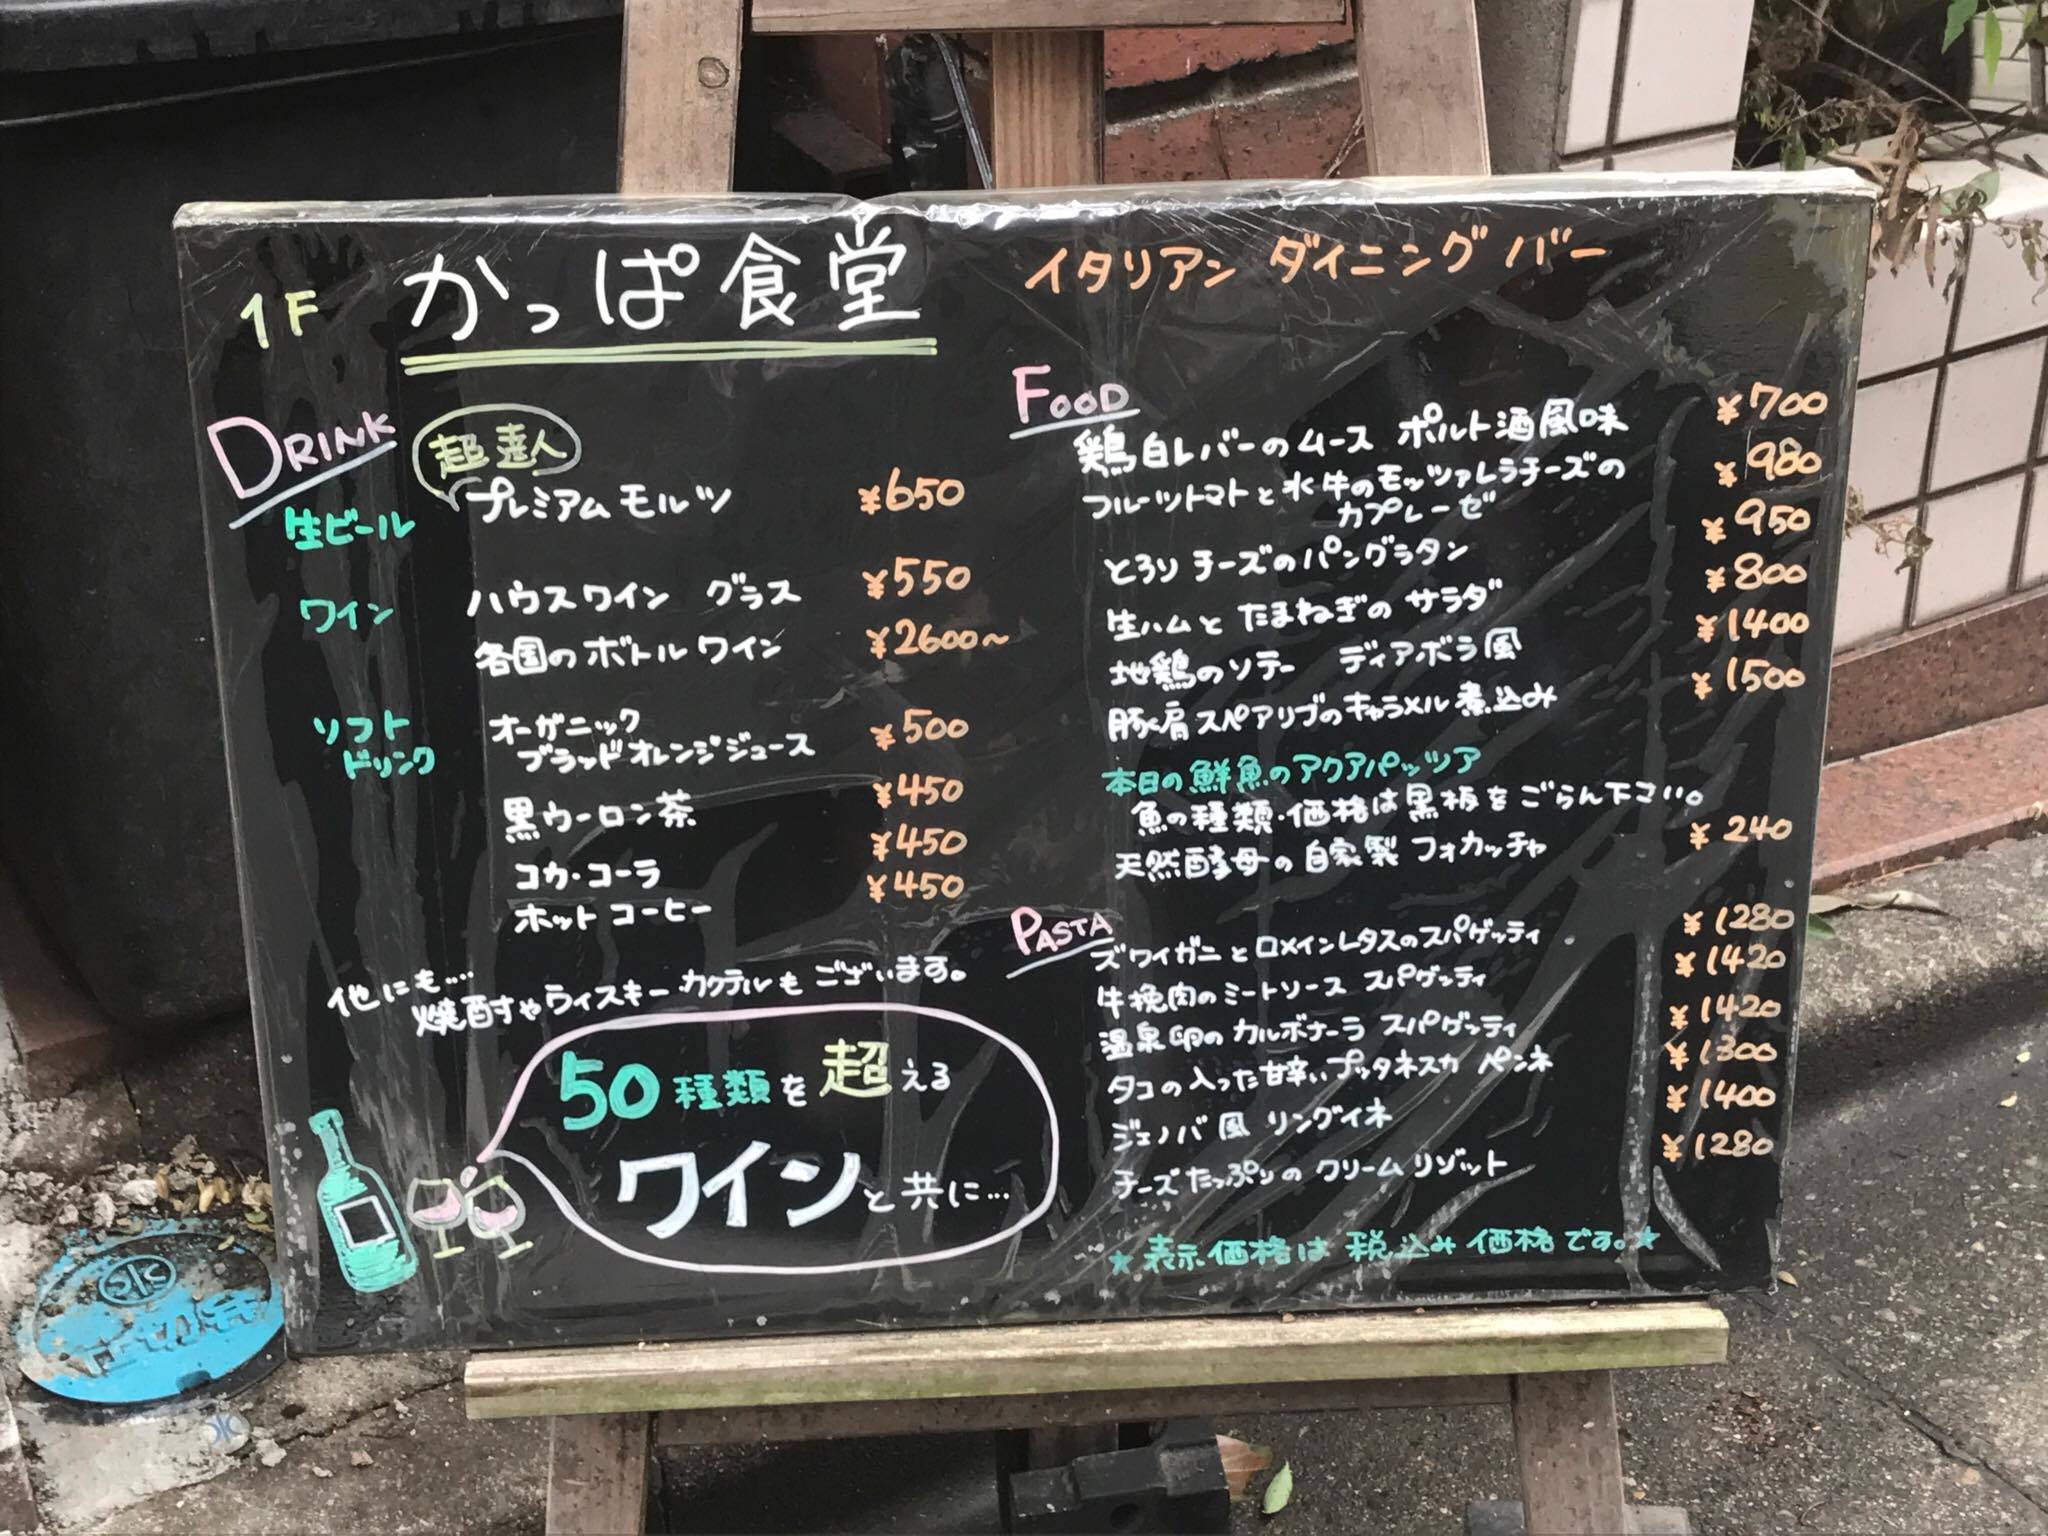 1F かっぱ食堂 イタリアン ダイニング バー
DRINK
超達人
生ビール プレミアムモルツ ¥650
ワイン ハウスワイン グラス ¥550
各国のボトルワイン ¥2600～
ソフトドリンク
オーガニック
ブラッドオレンジジュース ¥500
黒ウーロン茶 ¥450
コカ・コーラ ¥450
ホットコーヒー ¥450
他にも…
焼酎やウィスキー カクテルもございます。
50種類を超える
ワインと共に…
FOOD
鶏白レバーのムース ポルト酒風味 ¥700
フルーツトマトと水牛のモッツァレラチーズの ¥980
カプレーゼ
とろりチーズのパングラタン ¥950
生ハムとたまねぎのサラダ ¥800
地鶏のソテー ディアボラ風 ¥1400
豚肩スペアリブのキャラメル煮込み ¥1500
本日の鮮魚のアクアパッツア
魚の種類・価格は黒板をごらん下さい。
天然酵母の自家製フォカッチャ ¥240
PASTA
ズワイガニとロメインレタスのスパゲッティ ¥1280
牛挽肉のミートソース スパゲッティ ¥1420
温泉卵のカルボナーラ スパゲッティ ¥1420
タコの入った甘辛いプッタネスカ ペンネ ¥1300
ジェノバ風 リングイネ ¥1400
チーズたっぷりのクリームリゾット ¥1280
★表示価格は税込み価格です。★